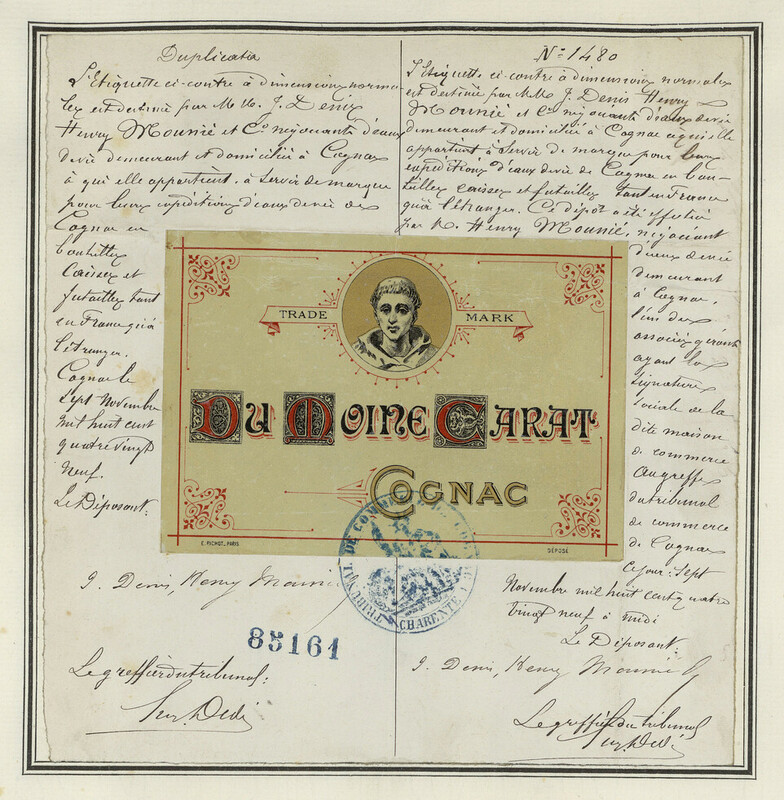 Duplicata
L'Etiquette ci-contre à dimensions norma-
les est destinée par M M. J. Denis
Henry Mounié et Cº négociants d'eaux
de vie demeurant et domicilié à Cognac
à qui elle appartient, à servir de marque
pour leurs expéditions d'eaux de vie de
Cognac en
bouteilles
Caisses et
futailles tant
en France qu'à
l'étranger.
Cognac le
Sept Novembre
mil huit cent
quatre vingt
neuf.
Le Déposant:
J. Denis, Henry Mounié
85161
Le greffier du tribunal:
Nº 1480
L'Etiquette ci-contre à dimensions normales
est destinée par M M. J. Denis Henry
Mounié et Cº négociants d'eaux de vie
demeurant et domicilié à Cognac à qui elle
appartient à servir de marque pour leurs
expéditions d'eaux de vie de Cognac en bou-
teilles caisses et futailles tant en France
qu'à l'étranger. Ce dépôt a été effectué
par M. Henry Mounié, négociant
d'eaux de vie
demeurant
à Cognac,
l'un des
associés gérants
ayant la
signature
sociale de la
dite maison
de commerce
au greffe
du tribunal
de commerce
de Cognac
ce jour: Sept
Novembre mil huit cent quatre
vingt neuf à midi
Le Déposant:
J. Denis, Henry Mounié
Le greffier du tribunal
TRADE MARK
DU MOINE CARAT
COGNAC
E. PICHOT, PARIS
DÉPOSÉ
TRIBUNAL DE COMMERCE DE
CHARENTE